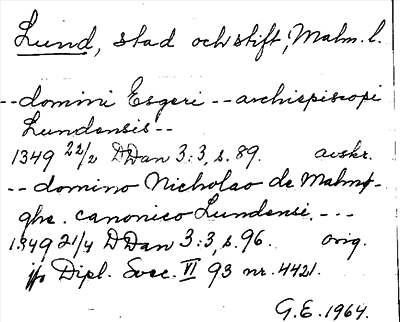 Lund, stad och stift, Malm. l.
--domini Esgeri -- archiepiscopi
Lundensis--
1349 22/2 DDan 3:3, s. 89. avskr.
-- domino Nicholao de Malmø-
ghe. canonico Lundensi. ---
1349 21/4 DDan 3:3, s. 96. orig.
jfr Dipl. Svec. VI 93 nr. 4421.
G.E. 1964.